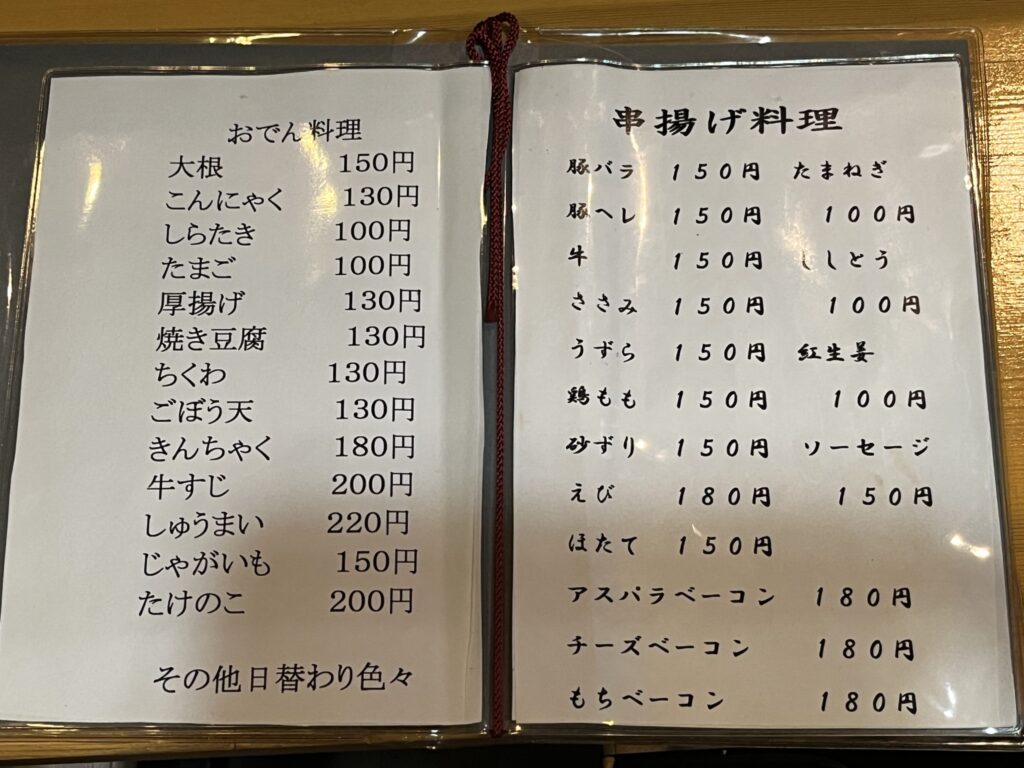 おでん料理
大根 150円
こんにゃく 130円
しらたき 100円
たまご 100円
厚揚げ 130円
焼き豆腐 130円
ちくわ 130円
ごぼう天 130円
きんちゃく 180円
牛すじ 200円
しゅうまい 220円
じゃがいも 150円
たけのこ 200円
その他日替わり色々
串揚げ料理
豚バラ 150円 たまねぎ
豚ヘレ 150円 100円
牛 150円 ししとう
ささみ 150円 100円
うずら 150円 紅生姜
鶏もも 150円 100円
砂ずり 150円 ソーセージ
えび 180円 150円
ほたて 150円
アスパラベーコン 180円
チーズベーコン 180円
もちベーコン 180円